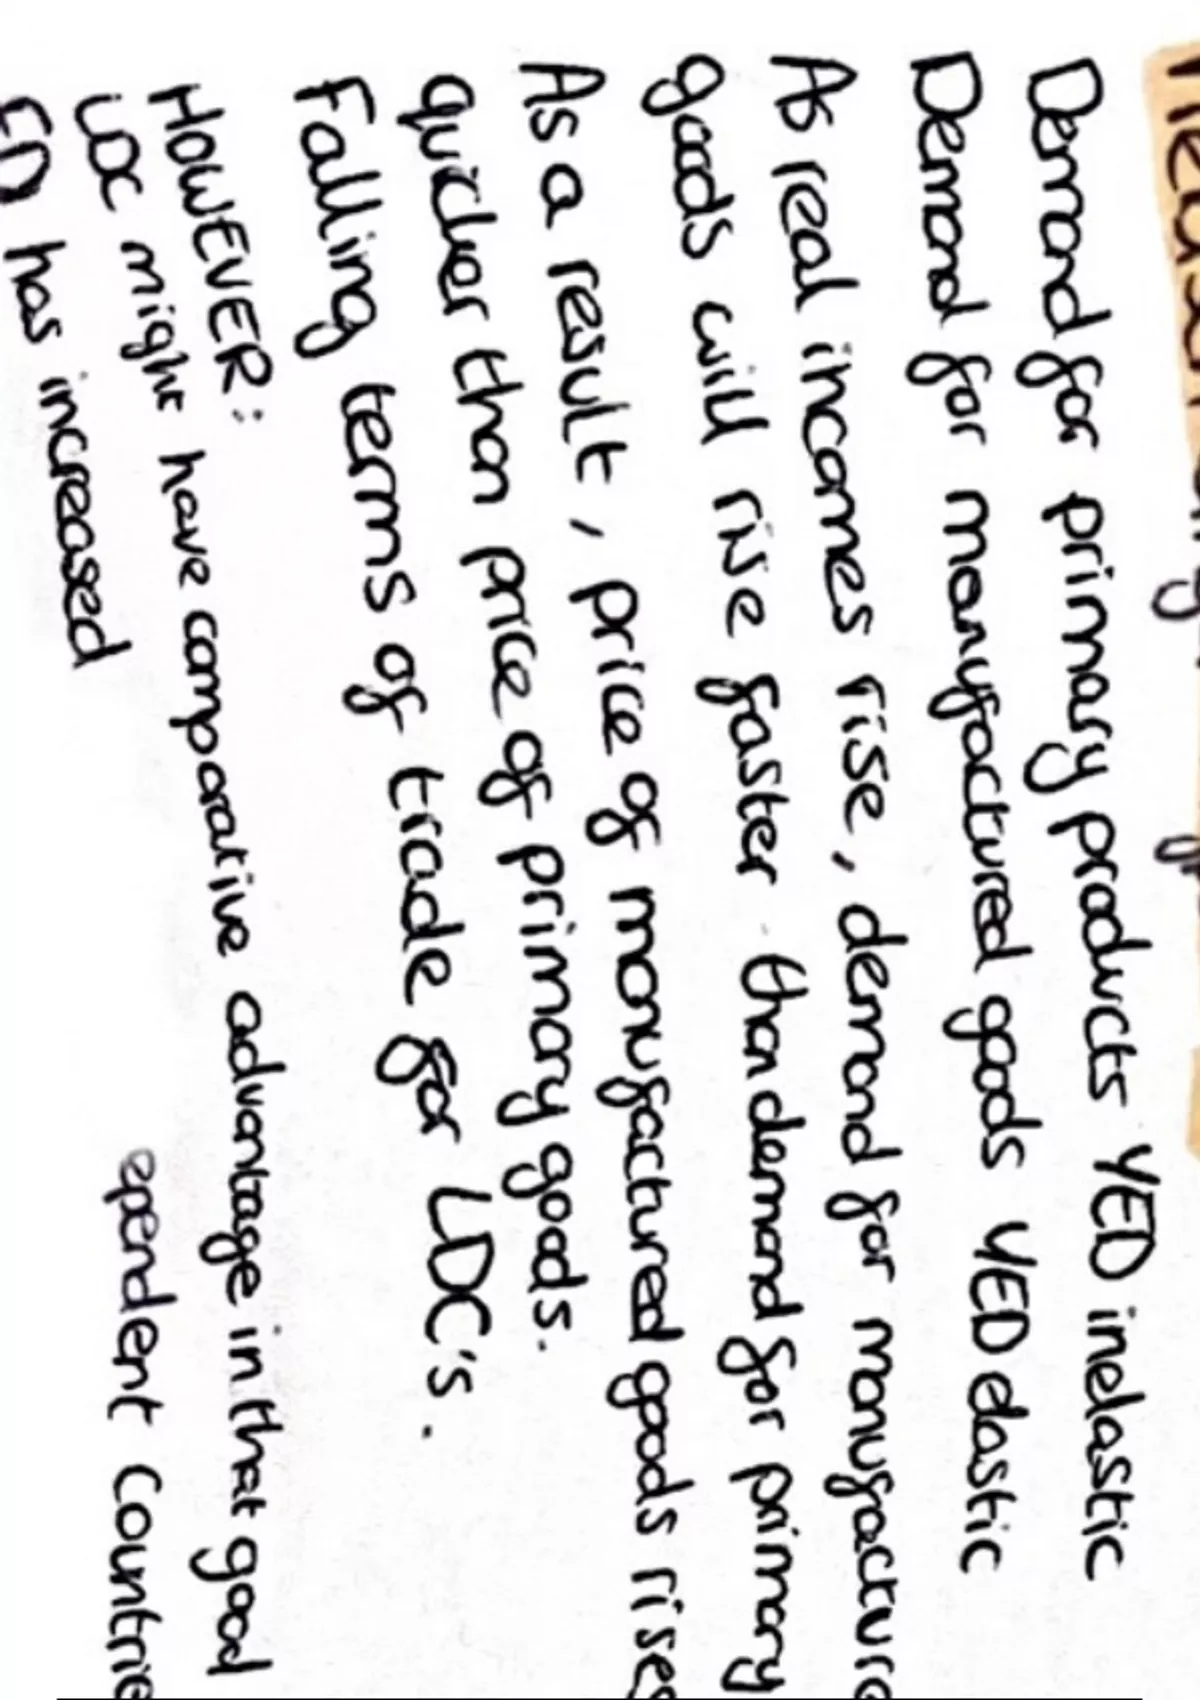 Demand for primary products YED inelastic
Demand for manufactured goods YED elastic
As real incomes rise, demand for manufacture
goods will rise faster than demand for primary
As a result, price of manufactured goods rises
quicker than price of primary goods.
Falling terms of trade for LDC's.
HOWEVER:
LDC might have comparative advantage in that good
ependent Countrie
has increased